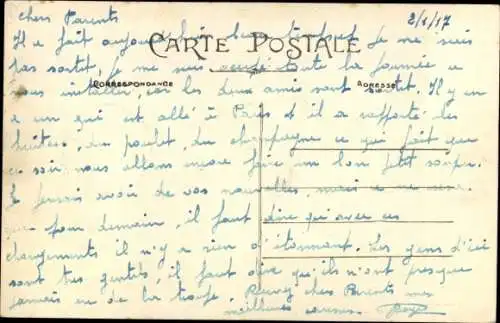 2/1/17
Chers Parents
Il a fait aujourd'hui beau temps et je ne suis
CARTE POSTALE
pas sortit, je me suis occupé toute la journée a
CORRESPONDANCE
ADRESSE
nous installer, car les deux amis sont sortit. Il y en
a un qui est allé à Paris et il a rapporté des
huitres, du poulet, du champagne ce qui fait que
ce soir nous allons encore faire un bon petit souper.
Je pensais avoir de vos nouvelles, mais ce ne sera
que pour demain, il faut dire qu'avec ces
changements il n'y a rien d'étonnant. Les gens d'ici
sont très gentils, il faut dire qu'ils n'ont presque
jamais eu de la troupe. Recevez chers Parents mes
meilleures caresses.